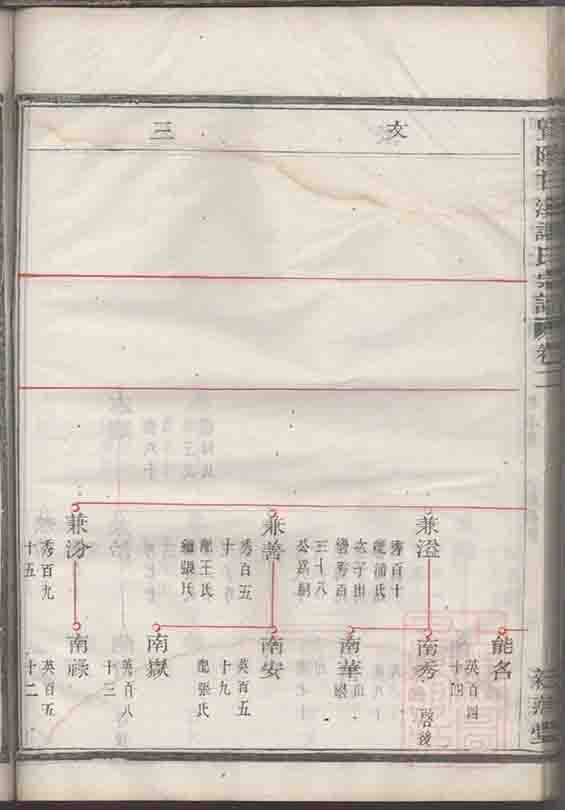 文
三
兼溢
秀百十
配浦氏
次子出
繼秀百
三十八
公爲嗣
兼善
秀百五
十
配王氏
繼張氏
兼汾
秀百九
十五
能名
英百四
十四
南秀 啓後
南華
出繼
南安
英百五
十九
配張氏
南嶽
英百八
十三
南祿
英百五
十二
氏宗譜
卷二